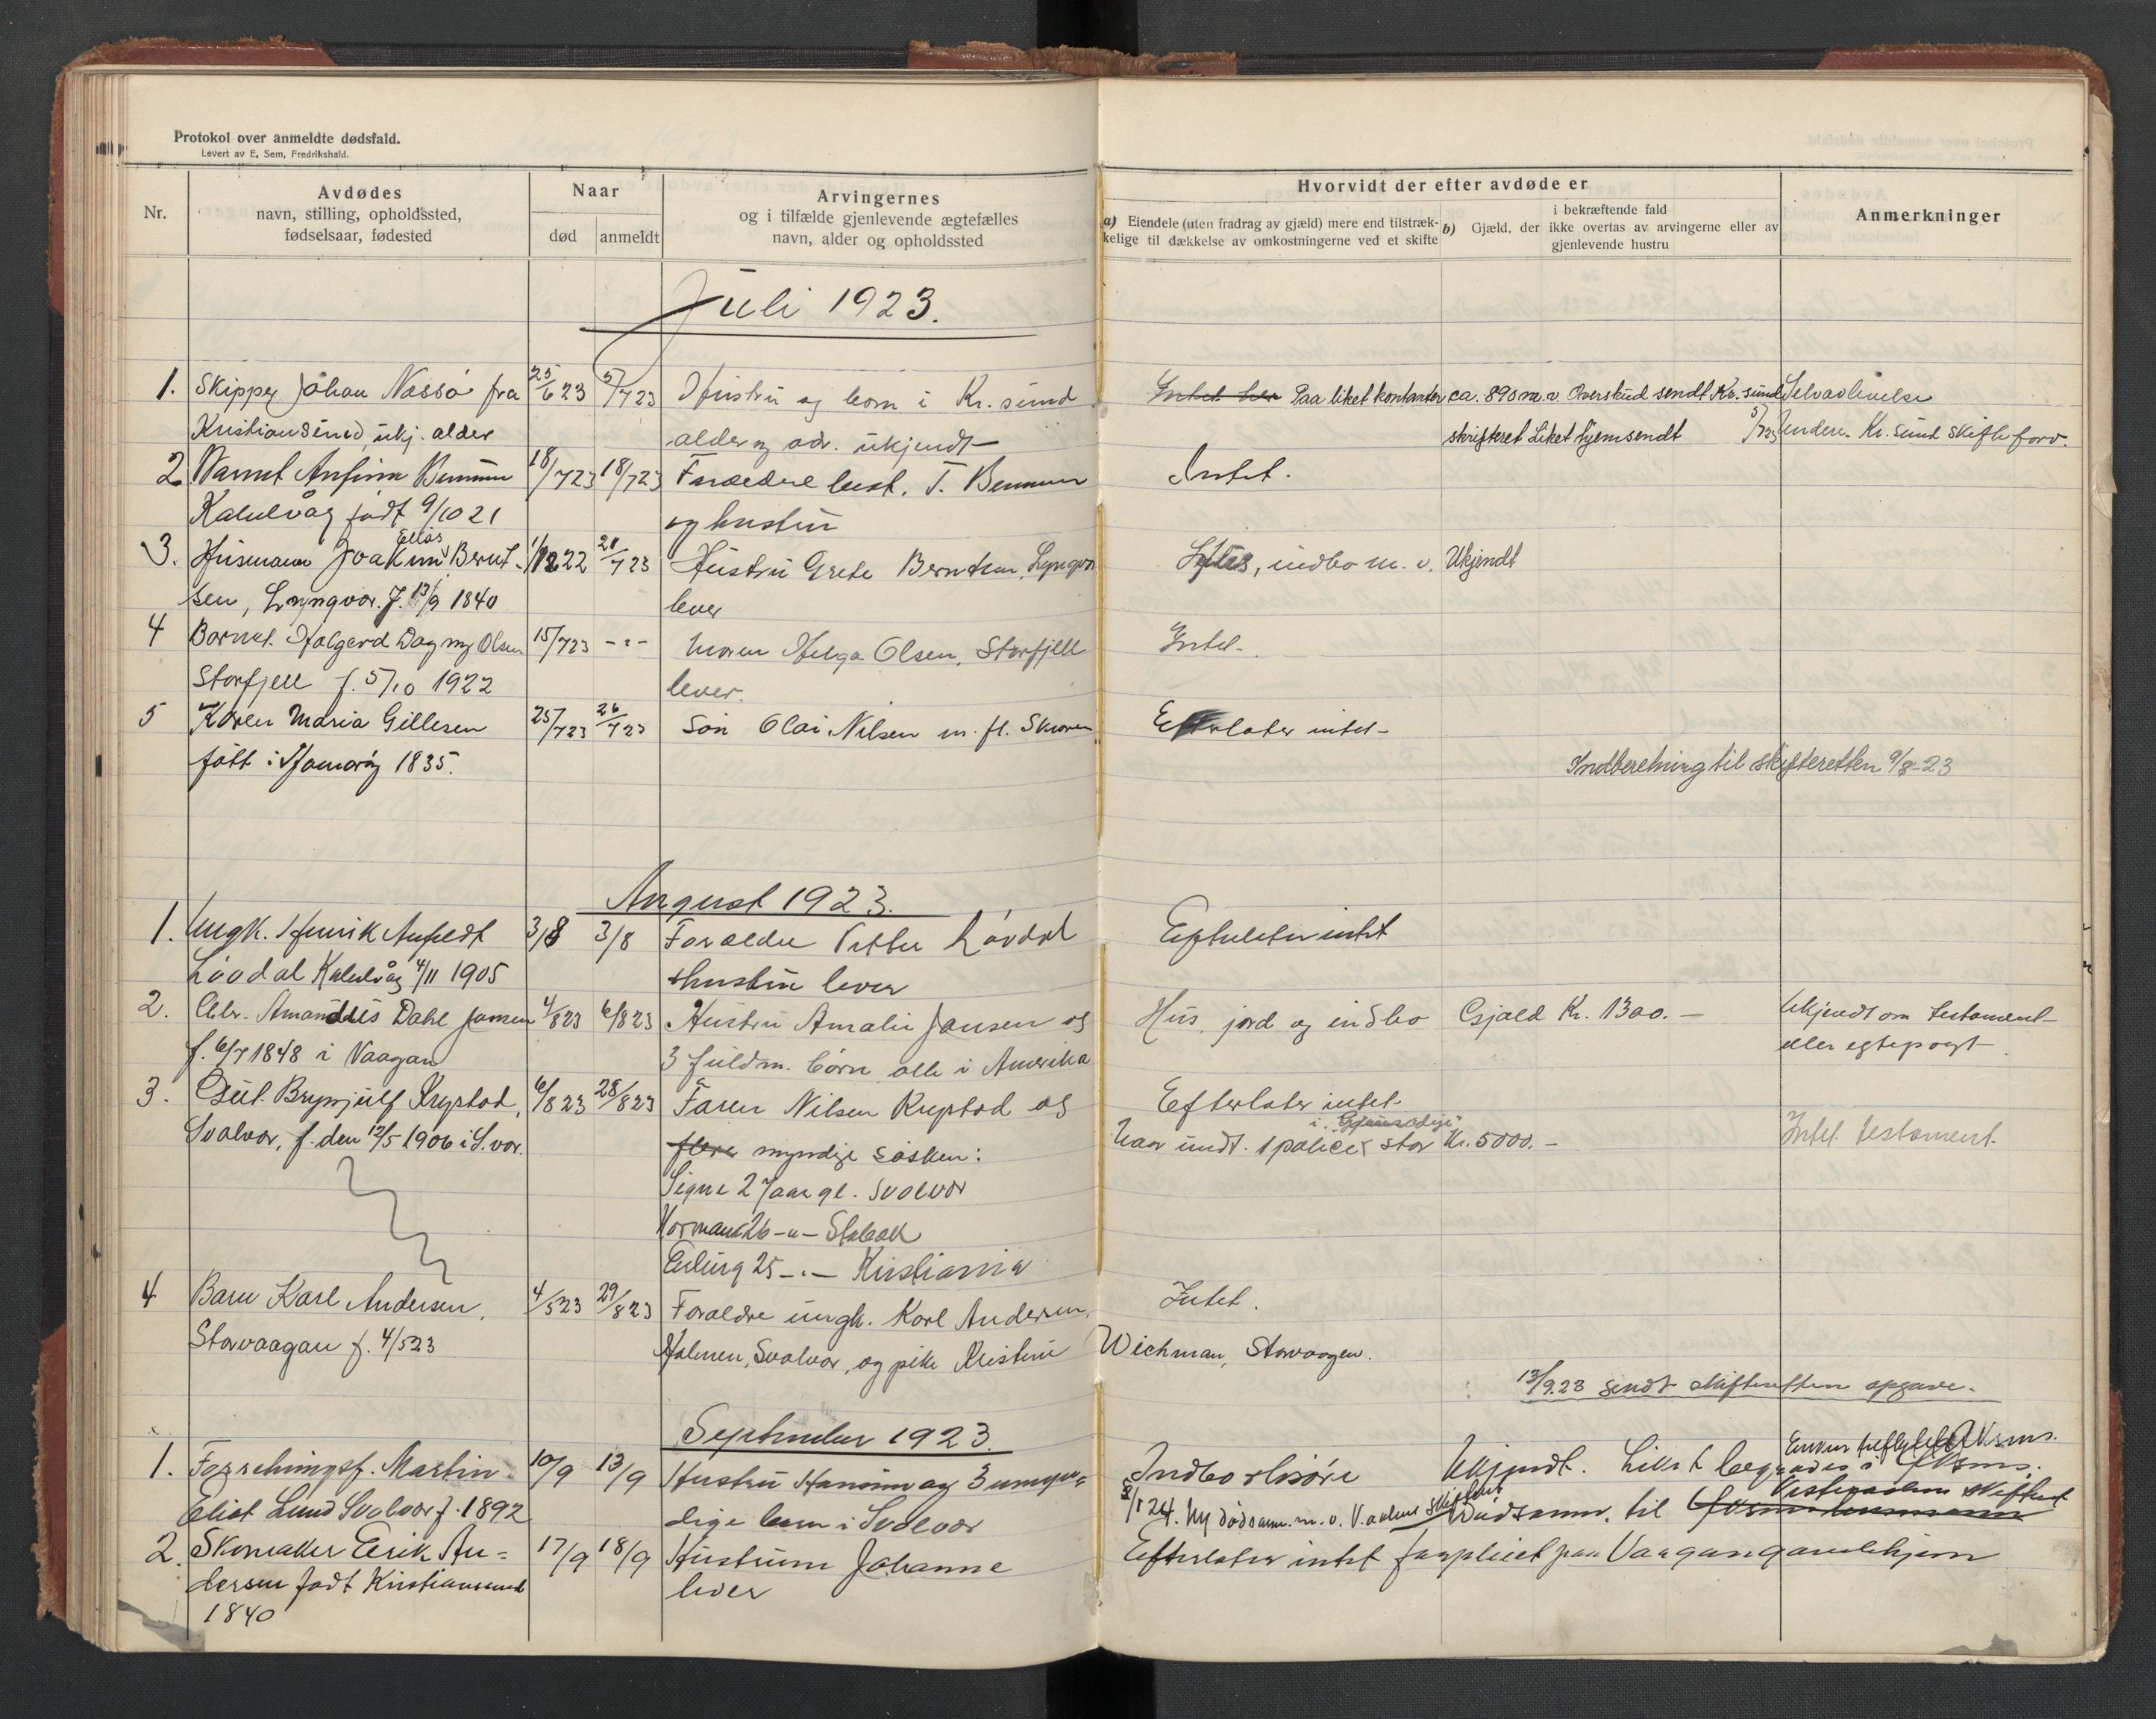 Protokol over anmeldte dødsfald.
Levert av E. Sem, Fredrikshald.
Nr.
Avdødes
navn, stilling, opholdssted,
fødselsaar, fødested
Naar
død
anmeldt
Arvingernes
og i tilfælde gjenlevende ægtefælles
navn, alder og opholdssted
Hvorvidt der efter avdøde er
a) Eiendele (uten fradrag av gjæld) mere end tilstræk-
kelige til dækkelse av omkostningerne ved et skifte
b) Gjæld, der
i bekræftende fald
ikke overtas av arvingerne eller av
gjenlevende hustru
Anmerkninger
Juli 1923.
1. Skipper Johan Nassø fra 25/6 23 5/7 23 Hustru og born i Kr. sund Intet her Paa liket kontanter ca. 890 m. v. Overskud sendt Kr. sund Selvavlivelse
Kristiansund, ukj. alder alder og adr. ukjendt skifteret Liket hjemsendt 5/7 23 Kr. sund skifteforv.
2 Anfinn 18/7 23 18/7 23 Forældre T. Intet.
Kabelvåg født 9/10 21 og hustru
3. Husmann Joakim Elias Bernt- 22 21/7 23 Hustru Grete Berntsen, Lyngvær indbo m. v. Ukjendt
sen, Lyngvær. f. 13/9 1840 lever
4 Barnet Halgerd Dagny Olsen 15/7 23 - " - Moren Helga Olsen, Storfjell Intet.
Storfjell f. 5/10 1922 lever.
5 Karen Maria Gillesen 25/7 23 26/7 23 Søn Olai Nilsen m. fl. Efterlater intet -
født i Hamarøy 1835.
Indberetning til skifteretten 9/8-23
August 1923.
1. Ungk. Henrik 3/8 3/8 Forældre Petter Løvdal Efterlater intet
Løvdal Kabelvåg 4/11 1905 + hustru lever
2. Amandus Dahl Jansen 4/8 23 6/8 23 Hustru Amalie Jansen og Hus, jord og indbo Gjæld Kr. 1300. - Ukjendt om testament
f. 6/7 1848 i Vaagan 3 fuldm. børn alle i Amerika eller egtepagt.
3. Gut. Brynjulf Krystad, 6/8 23 28/8 23 Faren Nilsen Krystad og Efterlater intet
Svolvær, f. den 12/5 1906 i S.vær. flere myndige søsken: undt. 1 police i stor Kr. 5000. - Intet testament.
Signe 27 aar gl. Svolvær
Normann 26 - " - Stabæk
Erling 25 - " - Kristiania
4 Barn Karl Andersen, 4/5 23 29/8 23 Forældre ungk. Karl Andersen, Intet.
Storvaagan f. 4/5 23 Holmen, Svolvær, og pike Kristine Wichman, Storvaagen.
13/9.23 sendt skifteretten opgave.
September 1923.
1. Martin 10/9 13/9 Hustru og 3 umyn= Indbo + løsøre Ukjendt. Liket begraves i
Eliot Lund Svolvær f. 1892 dige barn i Svolvær
2. Skomaker Erik An= 17/9 18/9 Hustrum Johanne Efterlater intet forpleiet paa Vaagan gamlehjem
dersen født Kristiansund lever
1840